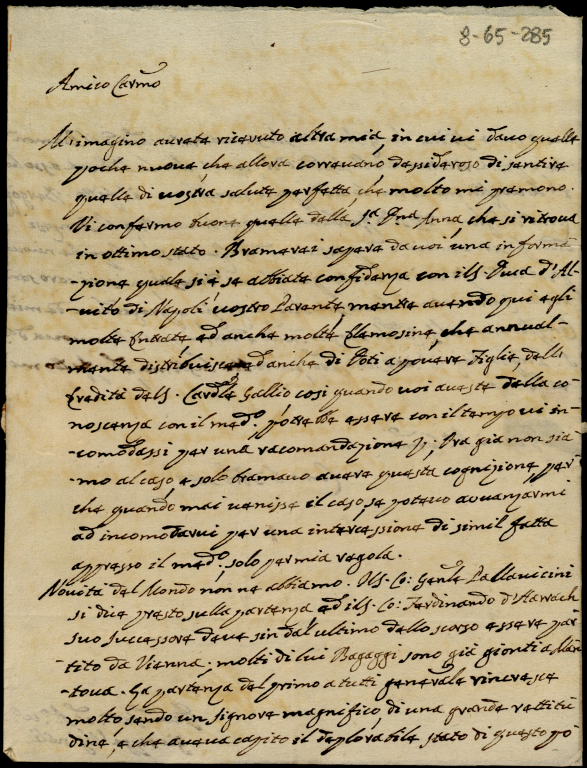 8-65-285
Amico Carmo
M'imagino aurete riceuuto altra mia, in cui ui dauo quelle
poche nuoue, che allora correuano, dessideroso di sentire
quelle di uostra salute perfetta, che molto mi premono.
Vi confermo buone quelle della Sa. Dna. Anna, che si ritroua
in ottimo stato. Bramerei sapere da uoi una informa
zione quale si è se abbiate confidenza con il S. Duca d'Al-
-uito di Napoli uostro Parente, mentre auendo qui egli
molte Entrate, ed anche molte Elemosine, che annual-
mente distribuisce, ed anche di Doti a pouere Figlie, dell'
Eredità del S. Cardle Gallio così quando uoi aueste della co
noscenza con il medo. potrebbe essere con il tempo ui in-
-comodassi per una racomandazione
Ora già non sia-
-mo al caso, e solo bramauo auere questa cognizione, per
che quando mai uenisse il caso, se poteuo auuanzarmi
ad incomodarui per una intercessione di simil fatta
appresso il medo. solo per mia regola.
Nouità del Mondo non ne abbiamo. Il S. Co: Genle Pallauicini
si dice presto sulla partenza, ed il S. Co: Ferdinando d'Harrach
suo successore deue sin dal ultimo dello scorso essere par
-tito da Vienna, molti di lui Bagaggi sono già gionti a Man
-toua. La partenza del primo a tutti generale rincresce
molto, sendo un signore magnifico, di una grande rettitu
dine, e che aueua capito il deplorabile stato di questo po-